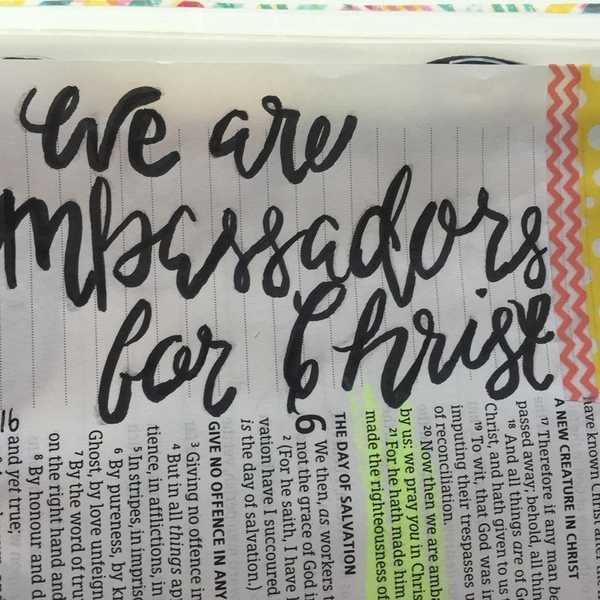 we are
mbassadors
for Christ
have known Christ
A NEW CREATURE IN CHRIST
17 Therefore if any man be
passed away; behold, all
18 And all things are of
Christ, and hath given to us
19 To wit, that God was in
imputing their trespasses
of reconciliation.
20 Now then we are amb
by us: we pray you in Chris
21 For he hath made him
made the righteousness of
THE DAY OF SALVATION
6 We then, as workers
not the grace of God
2 (For he saith, I have
vation have I succoured
is the day of salvation.)
GIVE NO OFFENCE IN ANY
3 Giving no offence in
4 But in all things ap
tience, in afflictions, in
5 In stripes, in impris
6 By pureness, by
Ghost, by love unfeign
7 By the word of
on the right hand and
8 By honour and
and yet true;